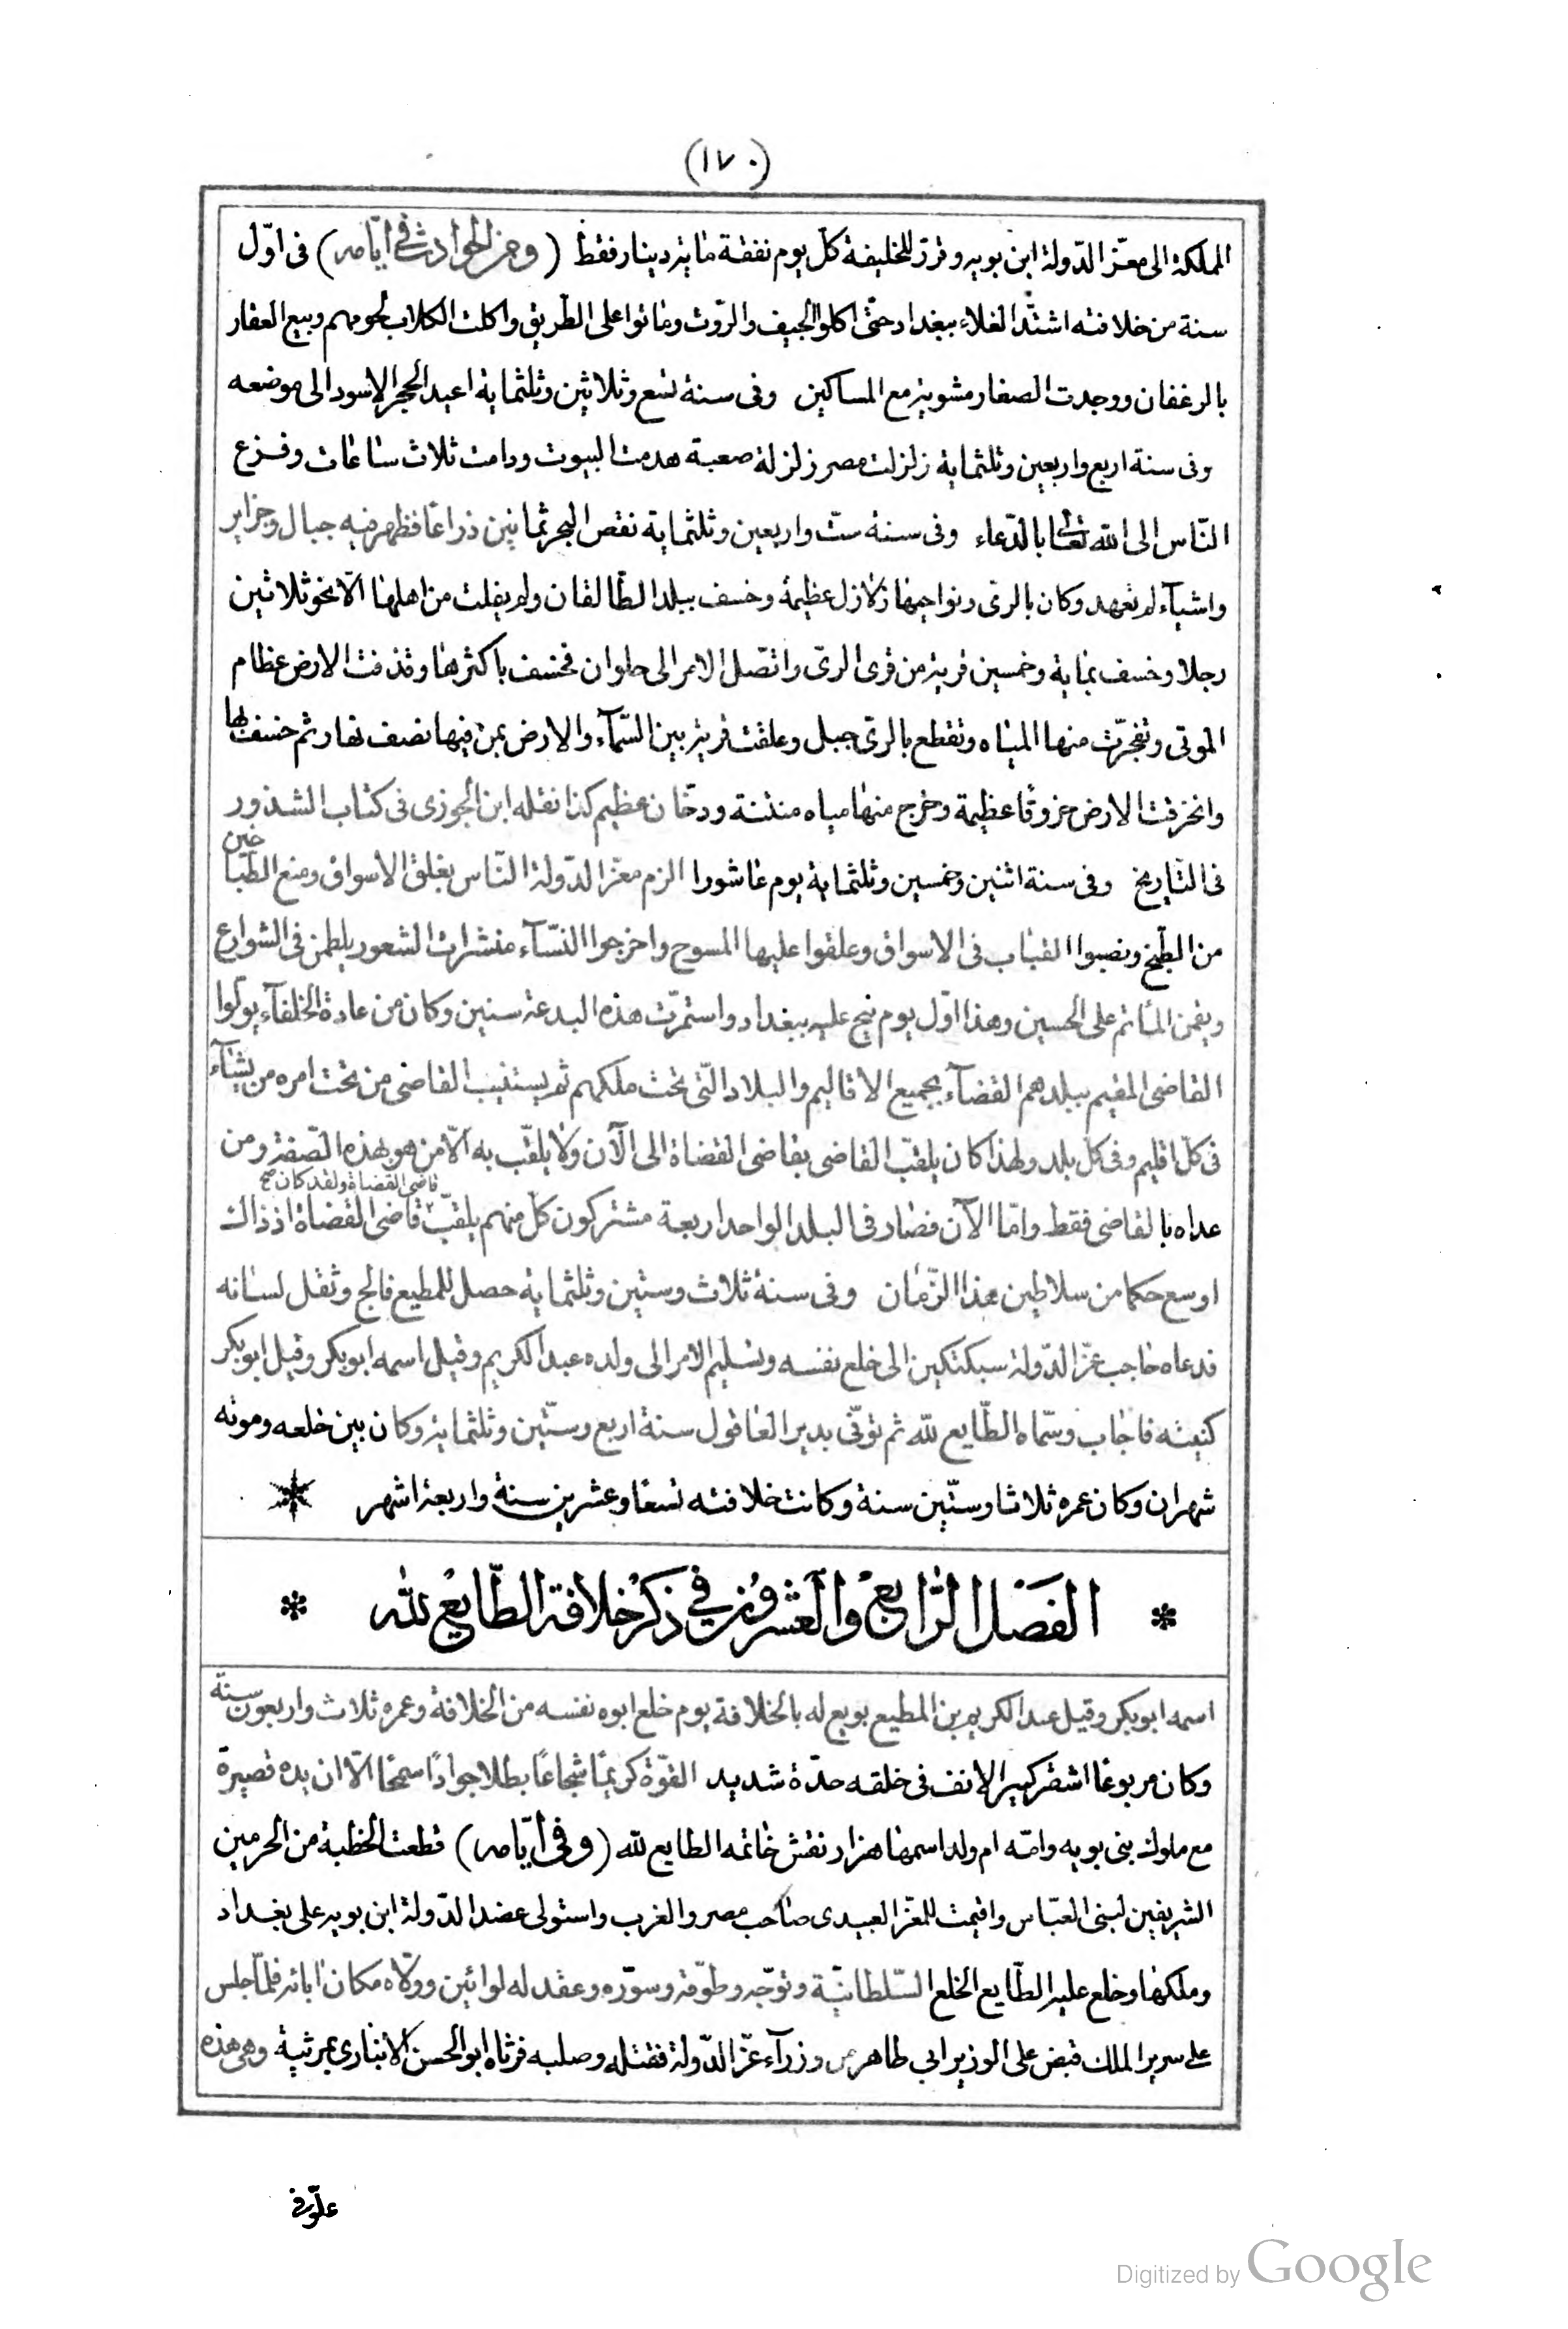 (١٧٠)
المملكة الى معزّ الدّولة ابن بويه وقرّر للخليفة كلّ يوم نفقة مايه دينار فقط (ومن الحوادث في ايّامه) فى اوّل
سنة من خلافته اشتدّ الغلاء ببغداد حتّى اكلوا الجيف والرّوث وماتوا على الطّريق واكلت الكلاب لحومهم وبيع العقار
بالرغفان ووجدت الصغار مشوية مع المساكين وفى سنة تسع وثلاثين وثلثماية اعيد الحجر الاسود الى موضعه
وفى سنة اربع واربعين وثلثماية زلزلت مصر زلزلة صعبة هدمت البيوت ودامت ثلاث ساعات وفزع
النّاس الى الله تعالى بالدّعاء وفى سنة ستّ واربعين وثلثماية نقص البحر ثمانين ذراعا فظهر فيه جبال وجزاير
واشيآء لم تعهد وكان بالرى ونواحيها زلازل عظيمة وخسف ببلد الطالقان ولم يفلت من اهلها الّا نحو ثلاثين
رجلا وخسف بماية وخمسين قرية من قرى الرىّ واتّصل الامر الى حلوان فخسف باكثرها وقذفت الارض عظام
الموتى وتفجّرت منها المياه وتقطع بالرى جبل وعلقت قرية بين السّمآء والارض بمن فيها نصف نهار ثم خسف بها
وانخرقت الارض خروقا عظيمة وخرج منها مياه منتنة ودخان عظيم كذا نقله ابن الجوزى فى كتاب الشذور
فى التّاريخ وفى سنة اثنين وخمسين وثلثماية يوم عاشورا الزم معزّ الدّولة النّاس بغلق الاسواق ومنع الطبّاخين
من الطّبخ ونصبوا القباب فى الاسواق وعلقوا عليها المسوح واخرجوا النسّآء منشرات الشعور يلطمن فى الشوارع
ويقمن المأتم على الحسين وهذا اوّل يوم نيح عليه ببغداد واستمرّت هذه البدعة سنين وكان من عادة الخلفآء يولّوا
القاضى المقيم ببلدهم القضآء بجميع الاقاليم والبلاد الّتى تحت ملكهم ثم يستنيب القاضى من تحت امره من يشآء
فى كلّ اقليم وفى كلّ بلد ولهذا كان يلقّب القاضى بقاضى القضاة الى الآن ولا يلقّب به الّا من هو بهذه الصّفة ومن
قاضى القضاة ولقد كان صح
عداه بالقاضى فقط وامّا الآن فصار فى البلد الواحد اربعة مشتركون كلّ منهم يلقّب قاضى القضاة اذ ذاك
اوسع حكما من سلاطين هذا الزّمان وفى سنة ثلاث وستين وثلثماية حصل للمطيع فالج وثقل لسانه
فدعاه حاجب عزّ الدّولة سبكتكين الى خلع نفسه وتسليم الامر الى ولده عبد الكريم وقيل اسمه ابو بكر وقيل ابو بكر
كنيته فاجاب وسمّاه الطّايع لله ثم توفّى بدير العاقول سنة اربع وستّين وثلثماية وكان بين خلعه وموته
شهران وكان عمره ثلاثا وستّين سنة وكانت خلافته تسعا وعشرين سنة واربعة اشهر
الفصل الرّابع والعشرون في ذكر خلافة الطّايع لله
اسمه ابو بكر وقيل عبد الكريم بن المطيع بويع له بالخلافة يوم خلع ابوه نفسه من الخلافة وعمره ثلاث واربعون سنة
وكان مربوعا اشقر كبير الانف فى خلقه حدّة شديد القوّة كريما شجاعًا بطلا جوادًا سمحا الّا ان يده قصيرة
مع ملوك بنى بويه وامّه ام ولد اسمها هزار نقش خاتمه الطايع لله (وفى ايّامه) قطعت الخطبة من الحرمين
الشريفين لبنى العبّاس واقيمت للمعزّ العبيدى صاحب مصر والغرب واستولى عضد الدّولة ابن بويه على بغداد
وملكها وخلع عليه الطّايع الخلع السّلطانيّة وتوّجه وطوّقه وسوّره وعقد له لوائين وولّاه مكان ابائه فلمّا جلس
على سرير الملك قبض على الوزير ابى طاهر من وزرآء عزّ الدّولة فقتله وصلبه فرثاه ابو الحسن الانبارى بمرثية وهى هذه
علوّ فى
Digitized by Google